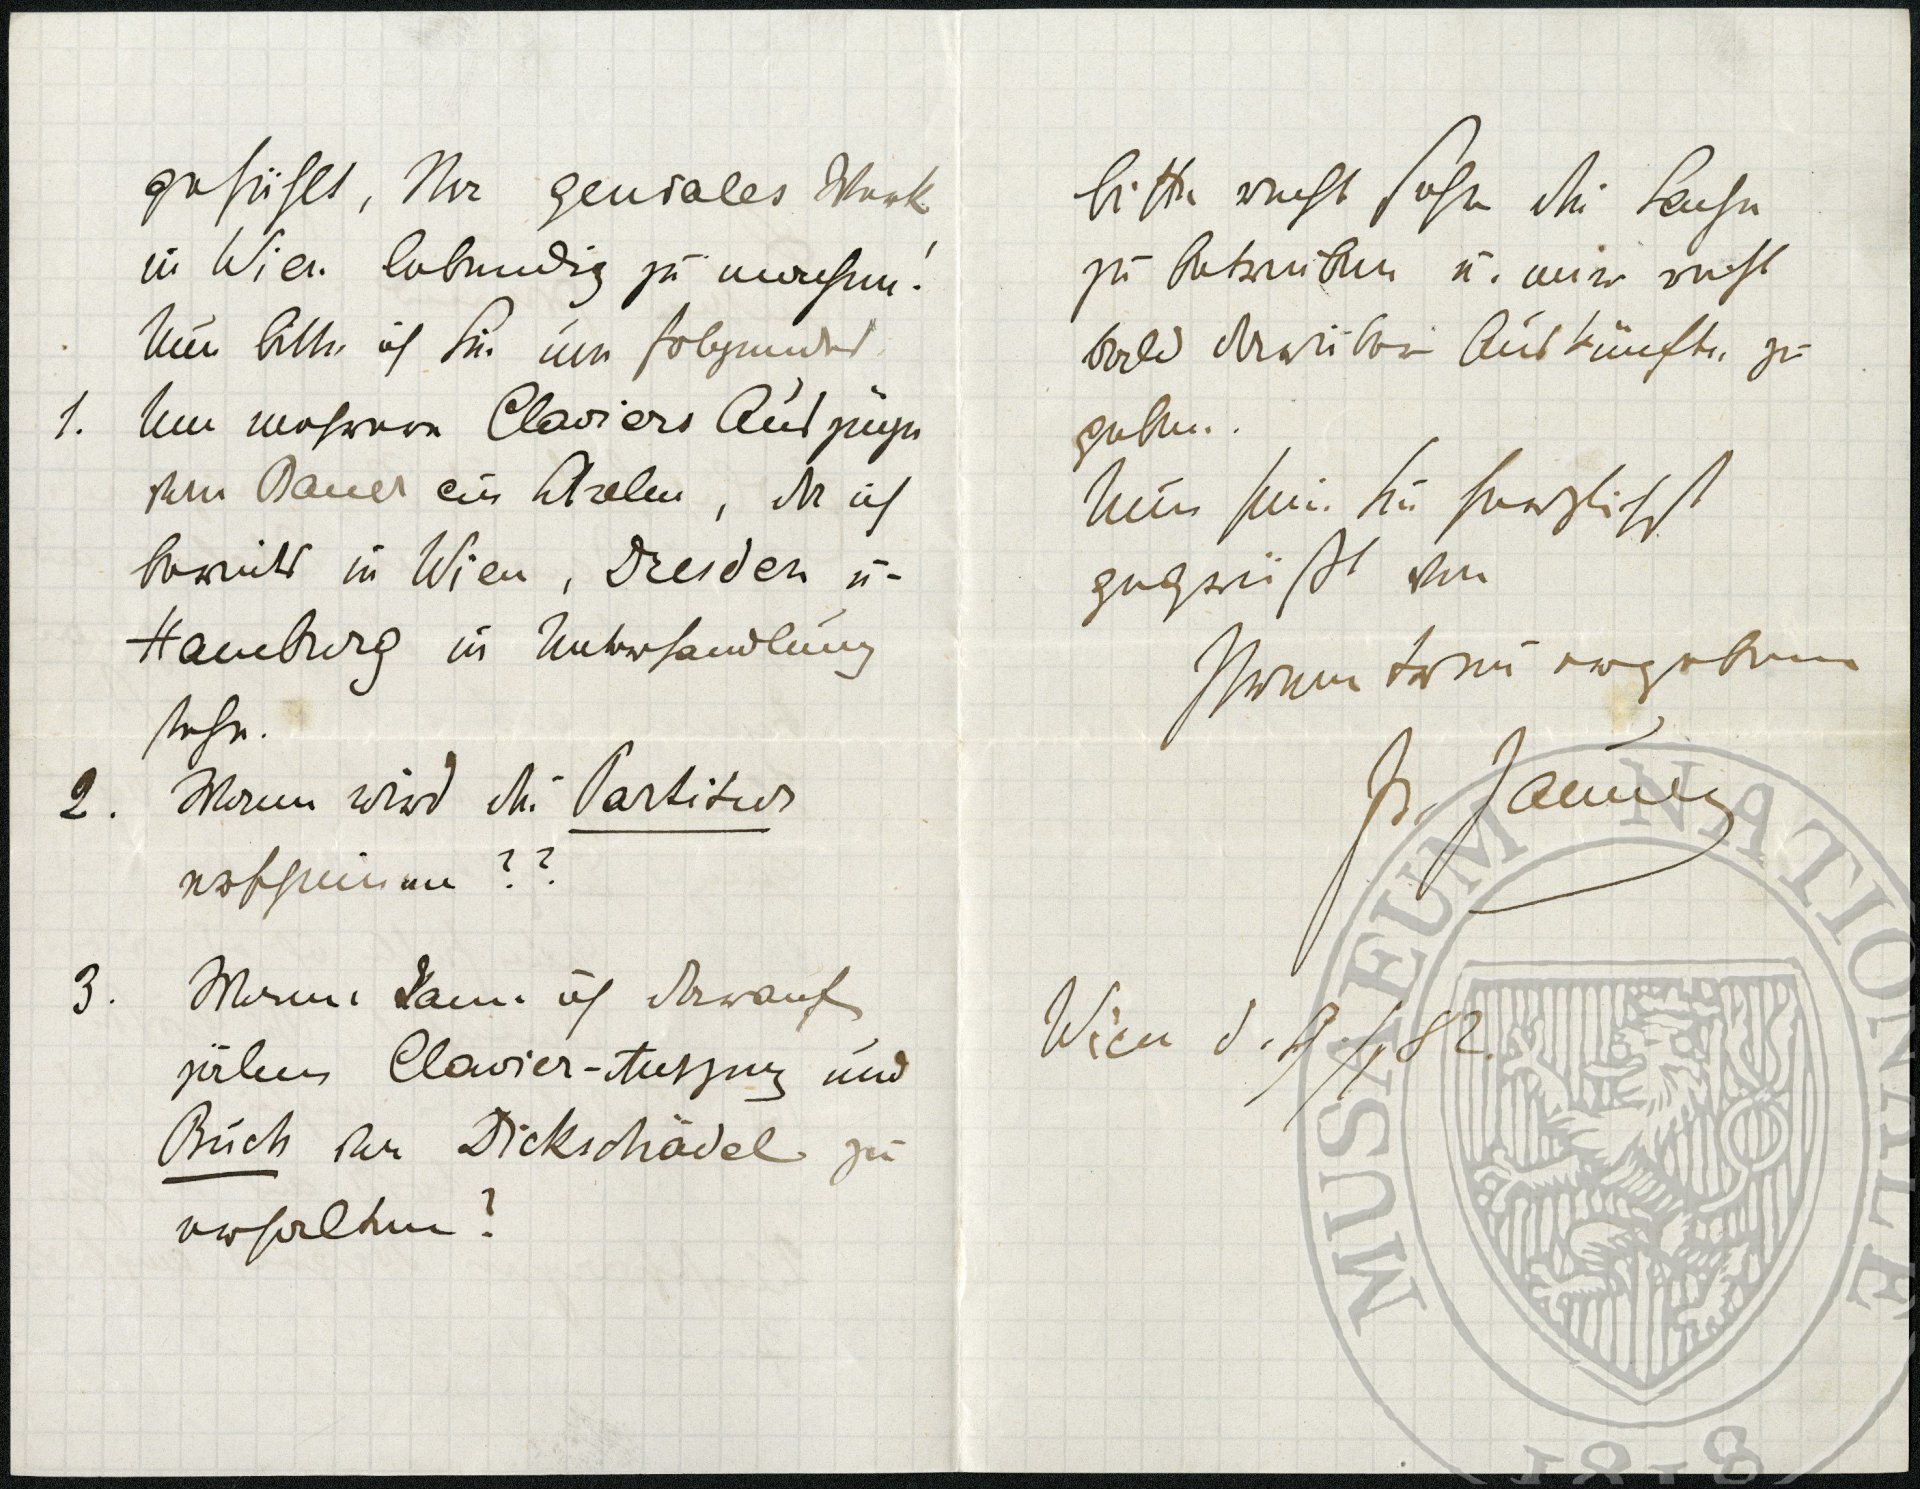 gefühlt, Ihr geniales Werk
in Wien lebendig zu machen!
Nun bitte ich Sie um folgendes
1. Um mehrere Claviers Auszüge
vom Bauer ein Schelm, da ich
bereits in Wien, Dresden u.
Hamburg in Unterhandlung
stehe.
2. Wann wird die Partitur
erscheinen??
3. Wann kann ich darauf
zälen Clavier-Auszug und
Buch der Dickschädel zu
erhalten?
bitte recht sehr die Sache
zu betreiben u. mir recht
bald darüber Auskünfte zu
geben.
Nun sein Sie herzlichst
gegrüßt von
Ihrem treu ergebenen
Fr. Jauner
Wien d. 9/1 82.
MUSAEUM NATIONALE
1818